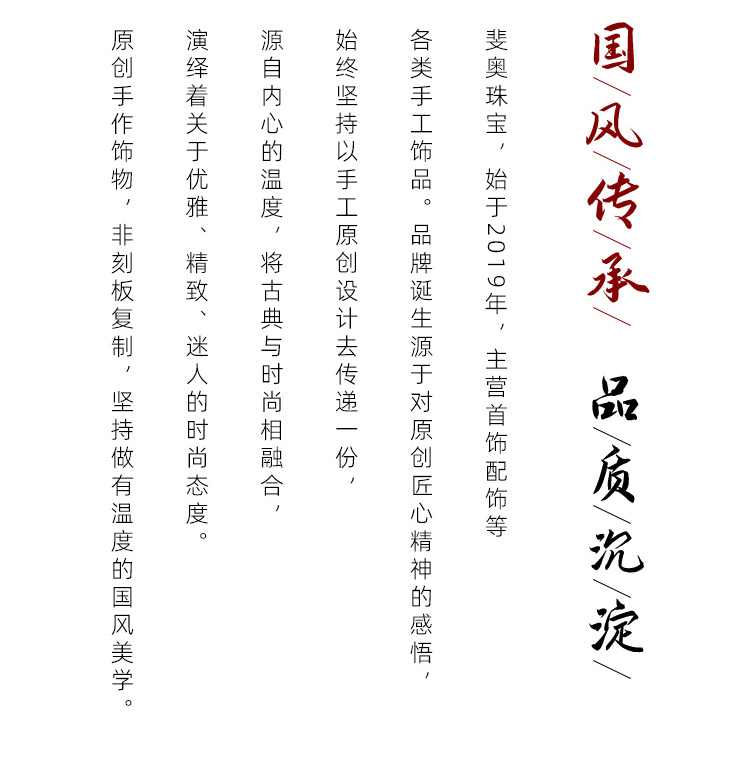 国风传承 品质沉淀
斐奥珠宝，始于2019年，主营首饰配饰等
各类手工饰品。品牌诞生源于对原创匠心精神的感悟，
始终坚持以手工原创设计去传递一份，
源自内心的温度，将古典与时尚相融合，
演绎着关于优雅、精致、迷人的时尚态度。
原创手作饰物，非刻板复制，坚持做有温度的国风美学。